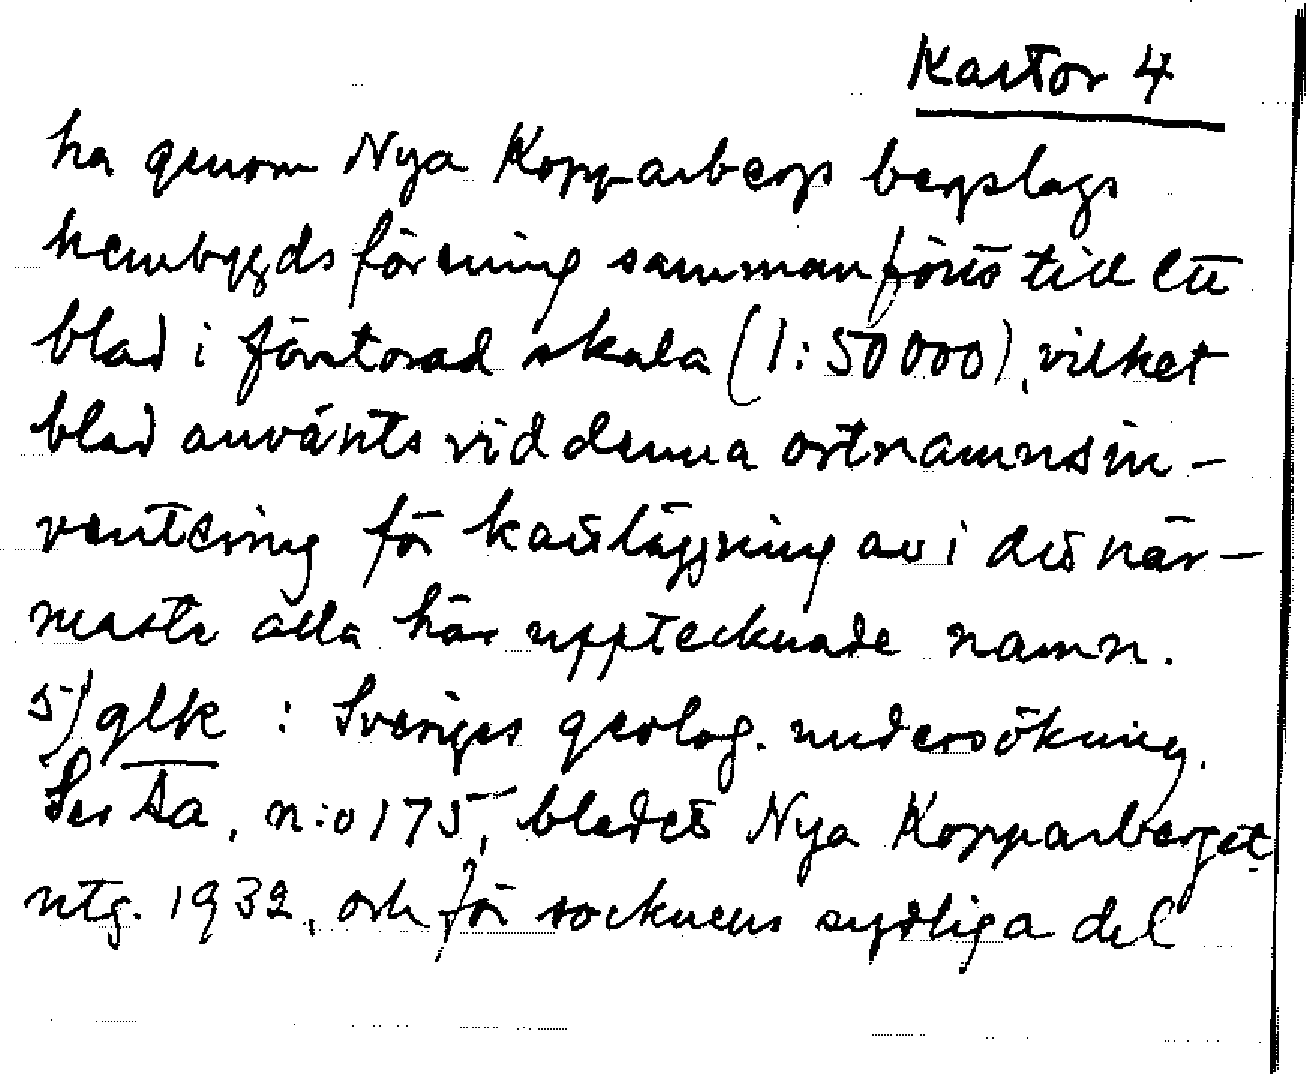 Kartor 4
ha genom Nya Kopparbergs bergslags
hembygdsförening sammanförts till ett
blad i förstorad skala (1:50 000), vilket
blad använts vid denna ortnamnsin-
ventering för kartläggning av i det när-
maste alla här upptecknade namn.
5) glk : Sveriges geolog. undersökning.
Ser Aa, n:o 175, bladet Nya Kopparberget
utg. 1932, och för socknens sydliga del